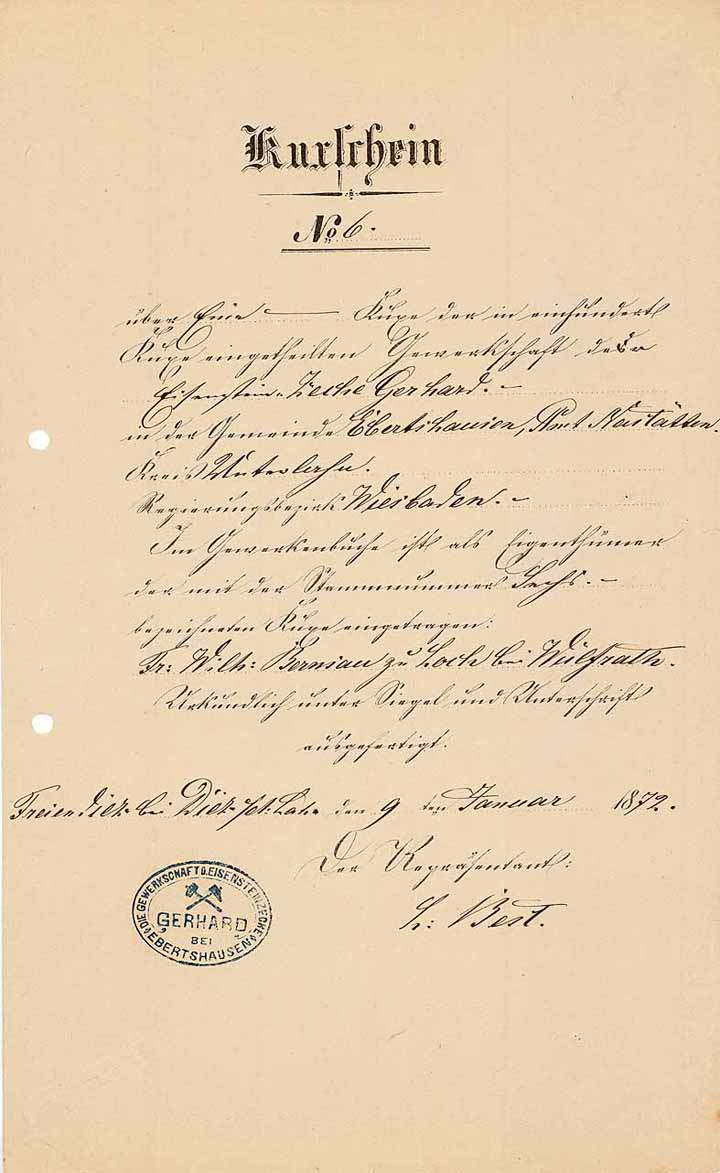 Kuxschein
No. 6.
über Eine Kuxe der in einhundert
Kuxe eingetheilten Gewerkschaft der
Eisenstein-Zeche Gerhard.
in der Gemeinde Ebertshausen, Amt Nastätten.
Kreis Unterlahn.
Regierungsbezirk Wiesbaden.
Im Gewerkenbuche ist als Eigenthümer
der mit der Stammnummer Sechs.
bezeichneten Kuxe eingetragen:
Fr: Wilh: Bernsau zu Loch bei Wülfrath.
Urkundlich unter Siegel und Unterschrift
ausgefertigt.
Freiendiez bei Diez den 9 ten Januar 1872.
Der Repräsentant:
Best.
DIE GEWERKSCHAFT D. EISENSTEINZECHE
GERHARD
BEI
EBERTSHAUSEN